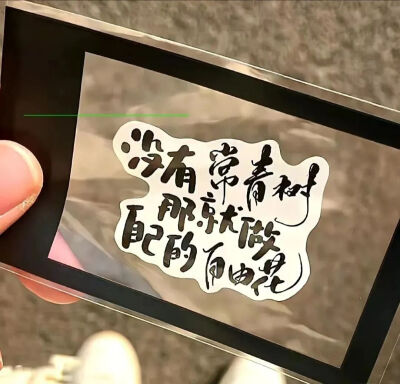 没有常青树
那就做
自己的自由花